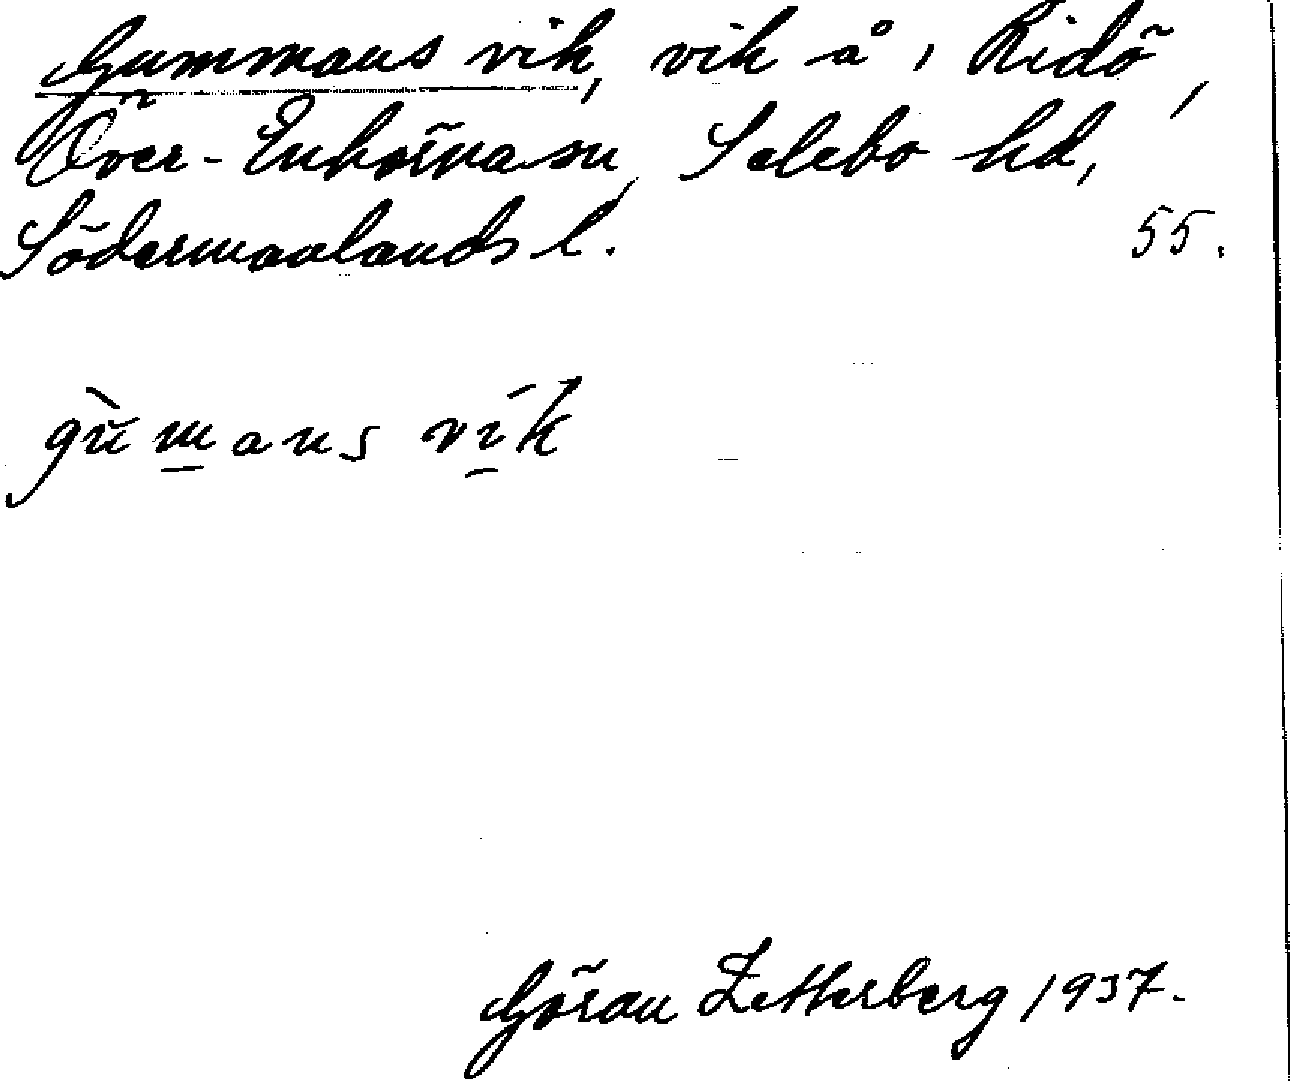 Gummans vik, vik å, Ridö,
Över-Enhörna sn, Selebo hd,
Södermanlands l. 55.
gùmans vík
Göran Zetterberg 1937.